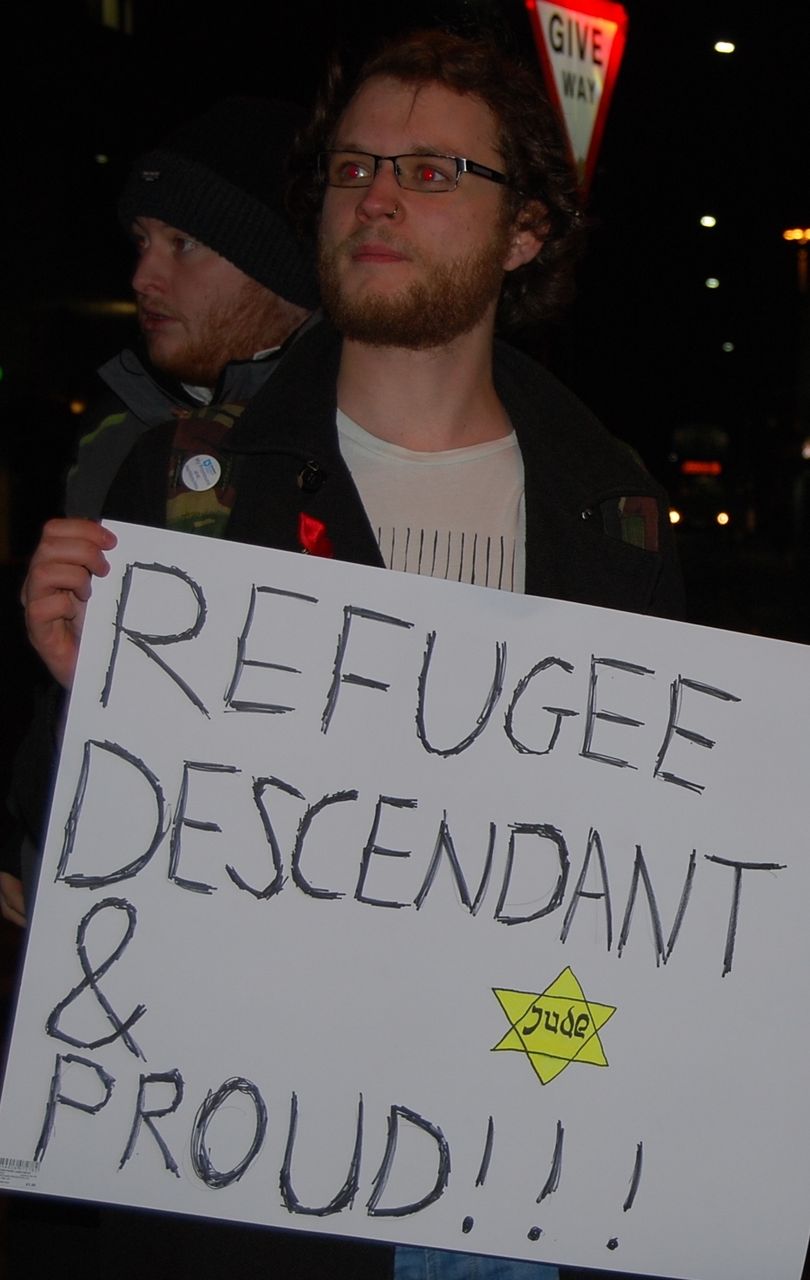 GIVE
WAY
REFUGEE
DESCENDANT
&
Jude
PROUD!!!